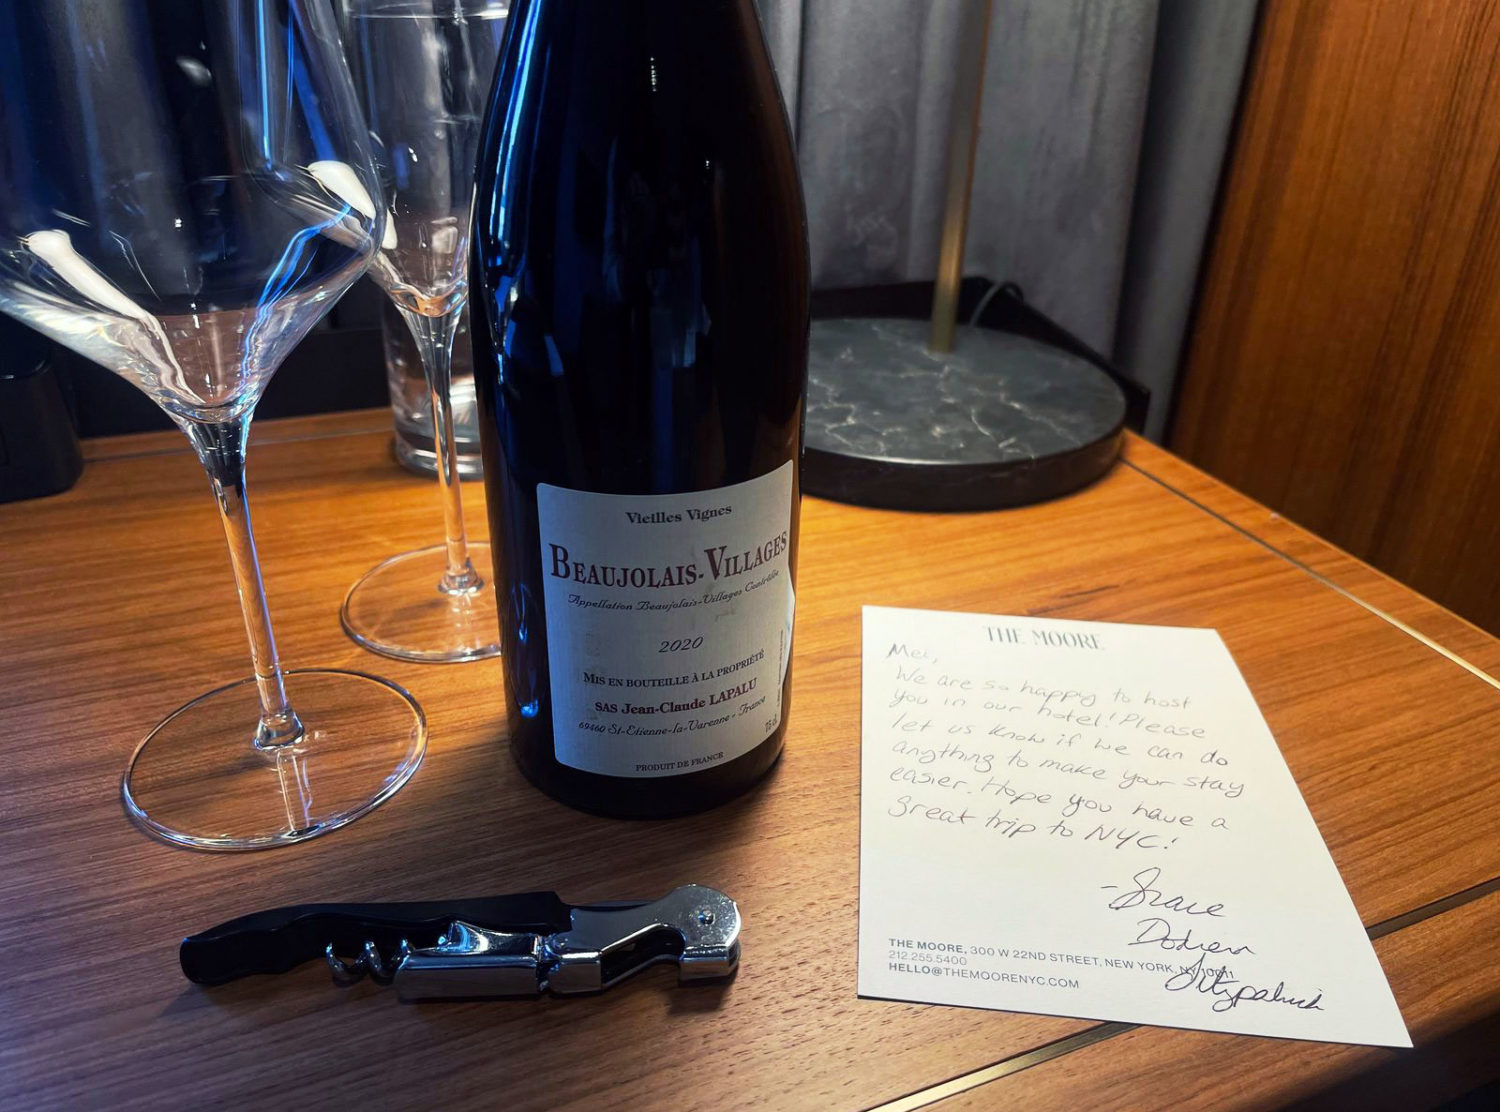 Vieilles Vignes
BEAUJOLAIS-VILLAGES
Appellation Beaujolais-Villages Contrôlée
2020
MIS EN BOUTEILLE À LA PROPRIÉTÉ
SAS Jean-Claude LAPALU
69460 St-Etienne-la-Varenne - France
75 cL
PRODUIT DE FRANCE
THE MOORE
Mei,
We are so happy to host
you in our hotel! Please
let us know if we can do
anything to make your stay
easier. Hope you have a
great trip to NYC!
-Grace
Fitzpatrick
THE MOORE, 300 W 22ND STREET, NEW YORK, NY 10011
212.255.5400
HELLO@THEMOORENYC.COM